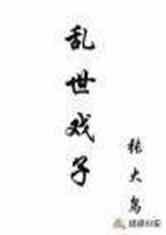 乱世戏子
张大鸟